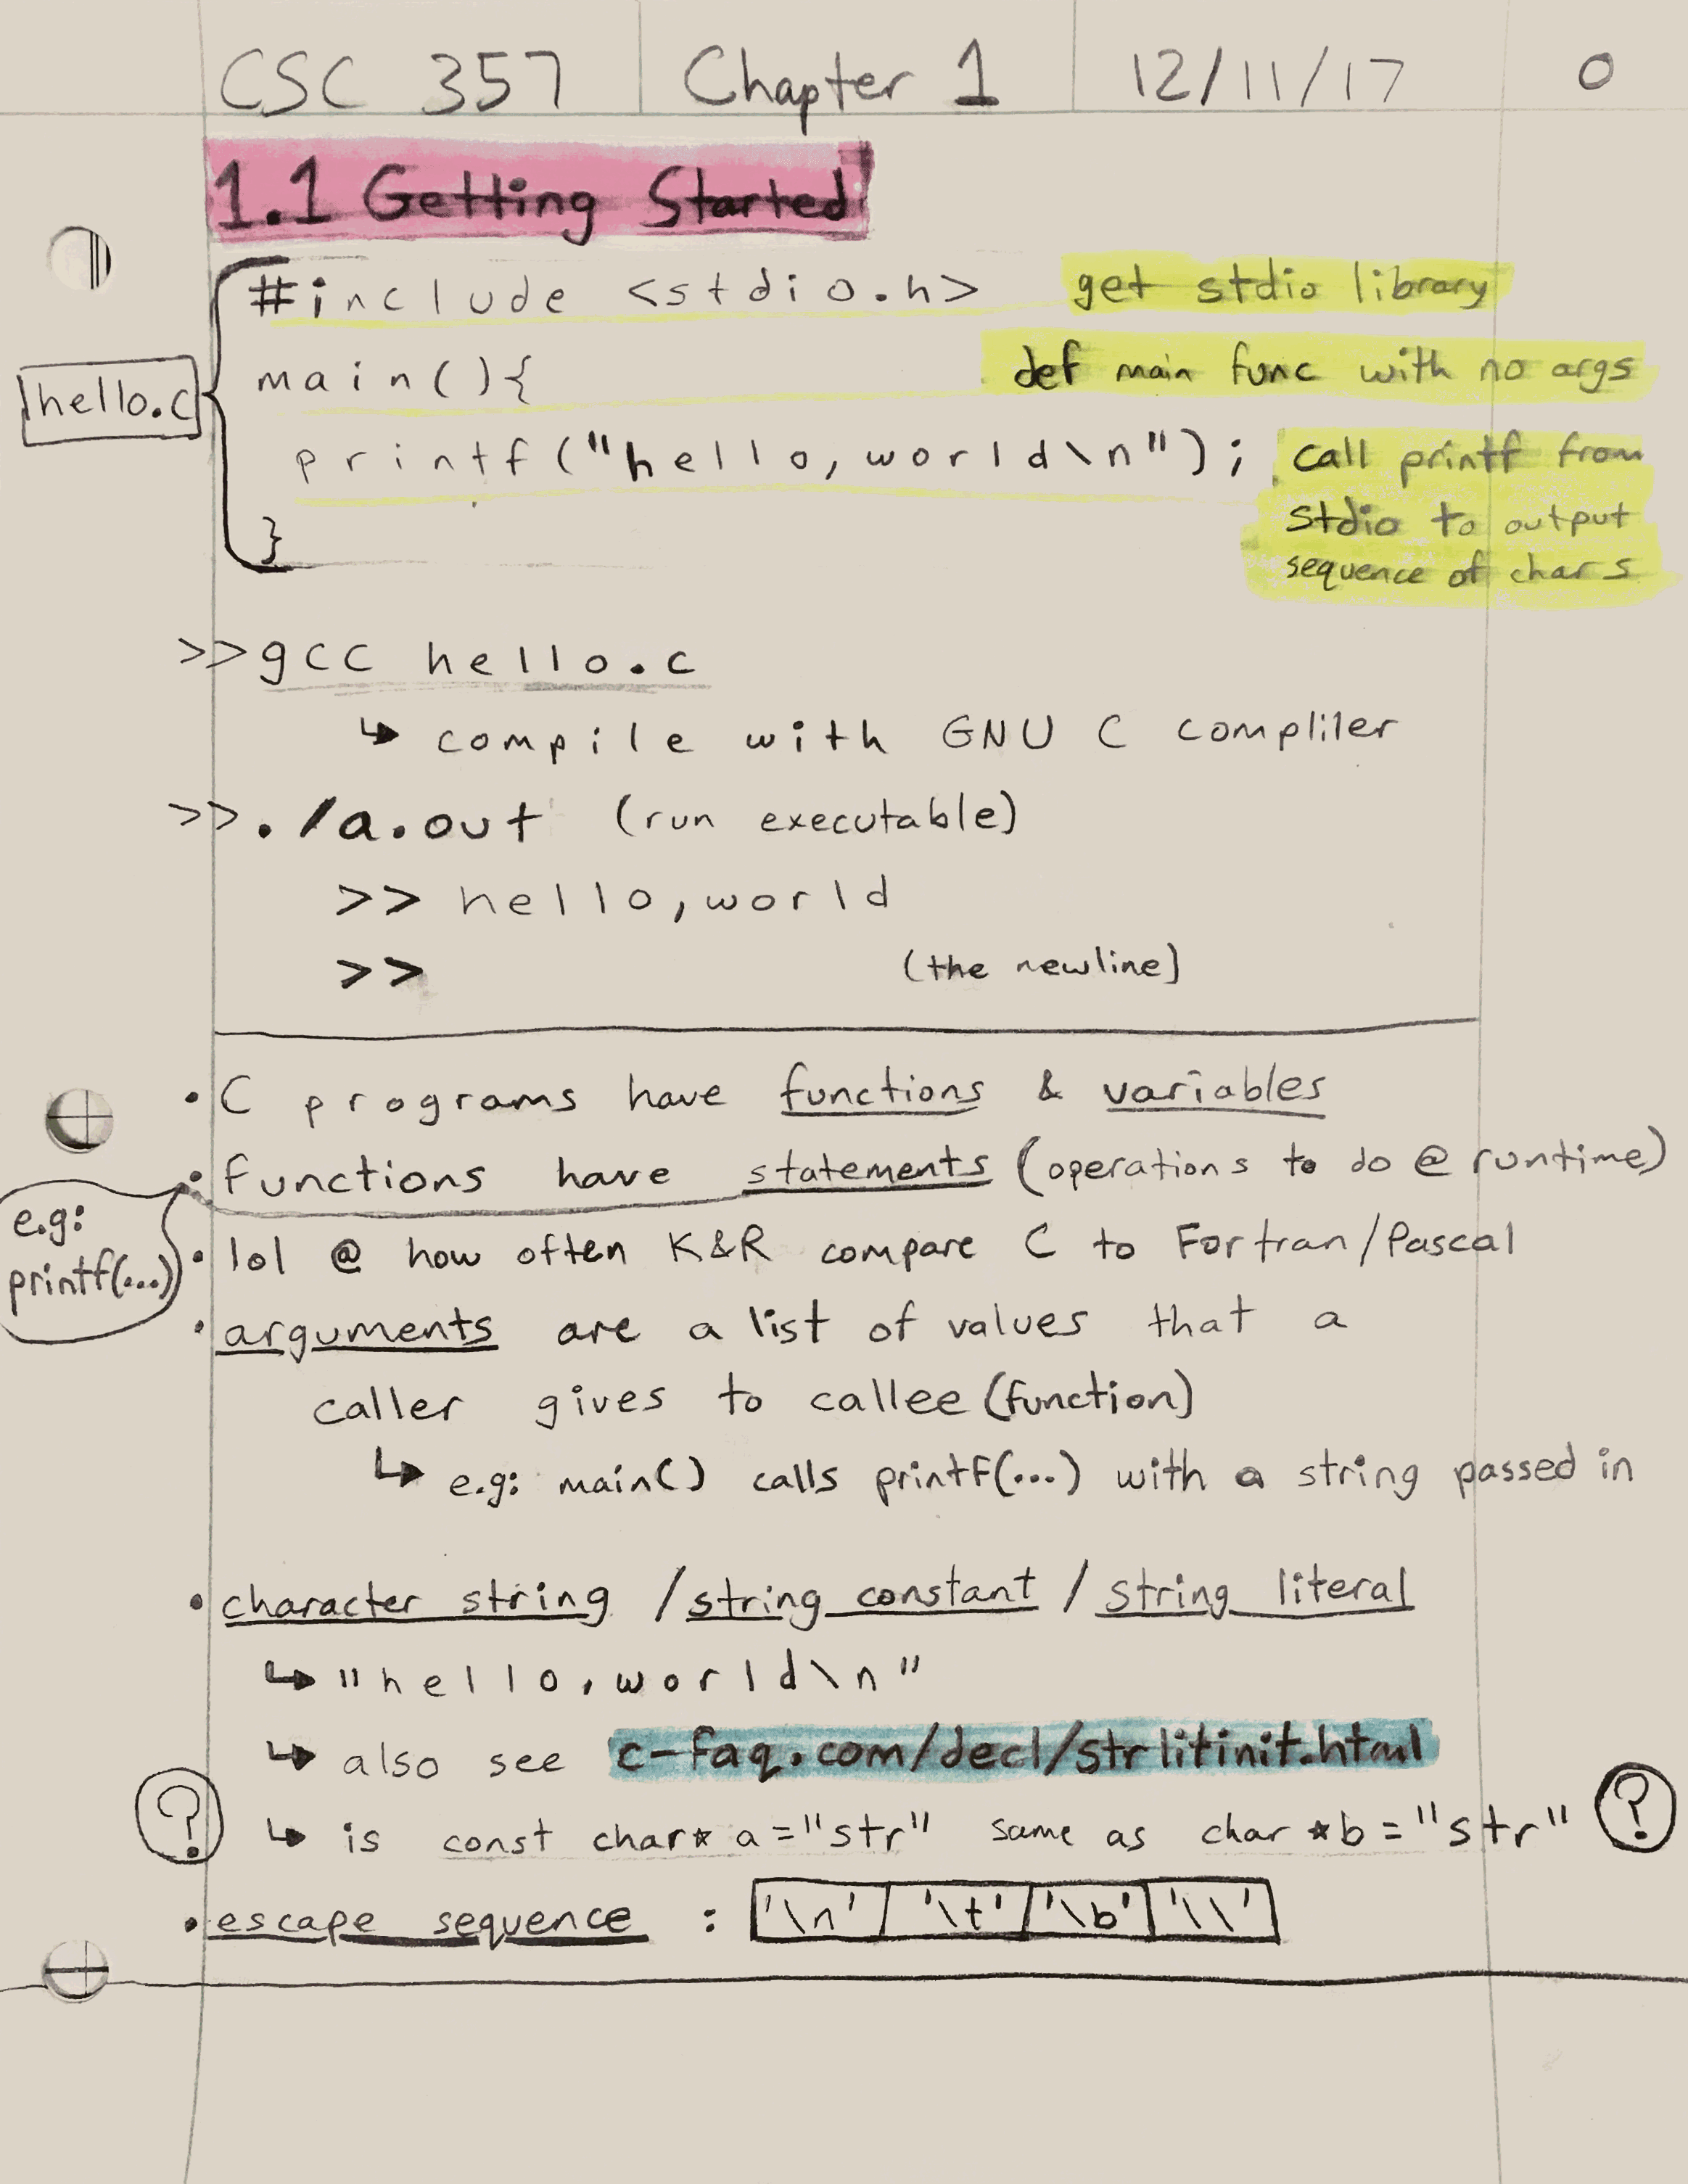 CSC 357 Chapter 1 12/11/17 0
1.1 Getting Started
#include <stdio.h> get stdio library
main(){ def main func with no args
hello.c
printf("hello, world\n"); call printf from
stdio to output
}
sequence of chars
>>gcc hello.c
↳ compile with GNU C compliler
>>./a.out (run executable)
>> hello, world
>> (the newline)
• C programs have functions & variables
• functions have statements (operations to do @ runtime)
e.g:
printf(...)
• lol @ how often K&R compare C to Fortran/Pascal
• arguments are a list of values that a
caller gives to callee (function)
↳ e.g: main() calls printf(...) with a string passed in
• character string / string constant / string literal
↳ "hello, world\n"
↳ also see c-faq.com/decl/strlitinit.html
? ↳ is const char* a = "str" same as char *b = "str" ?
• escape sequence : '\n' '\t' '\b' '\\'